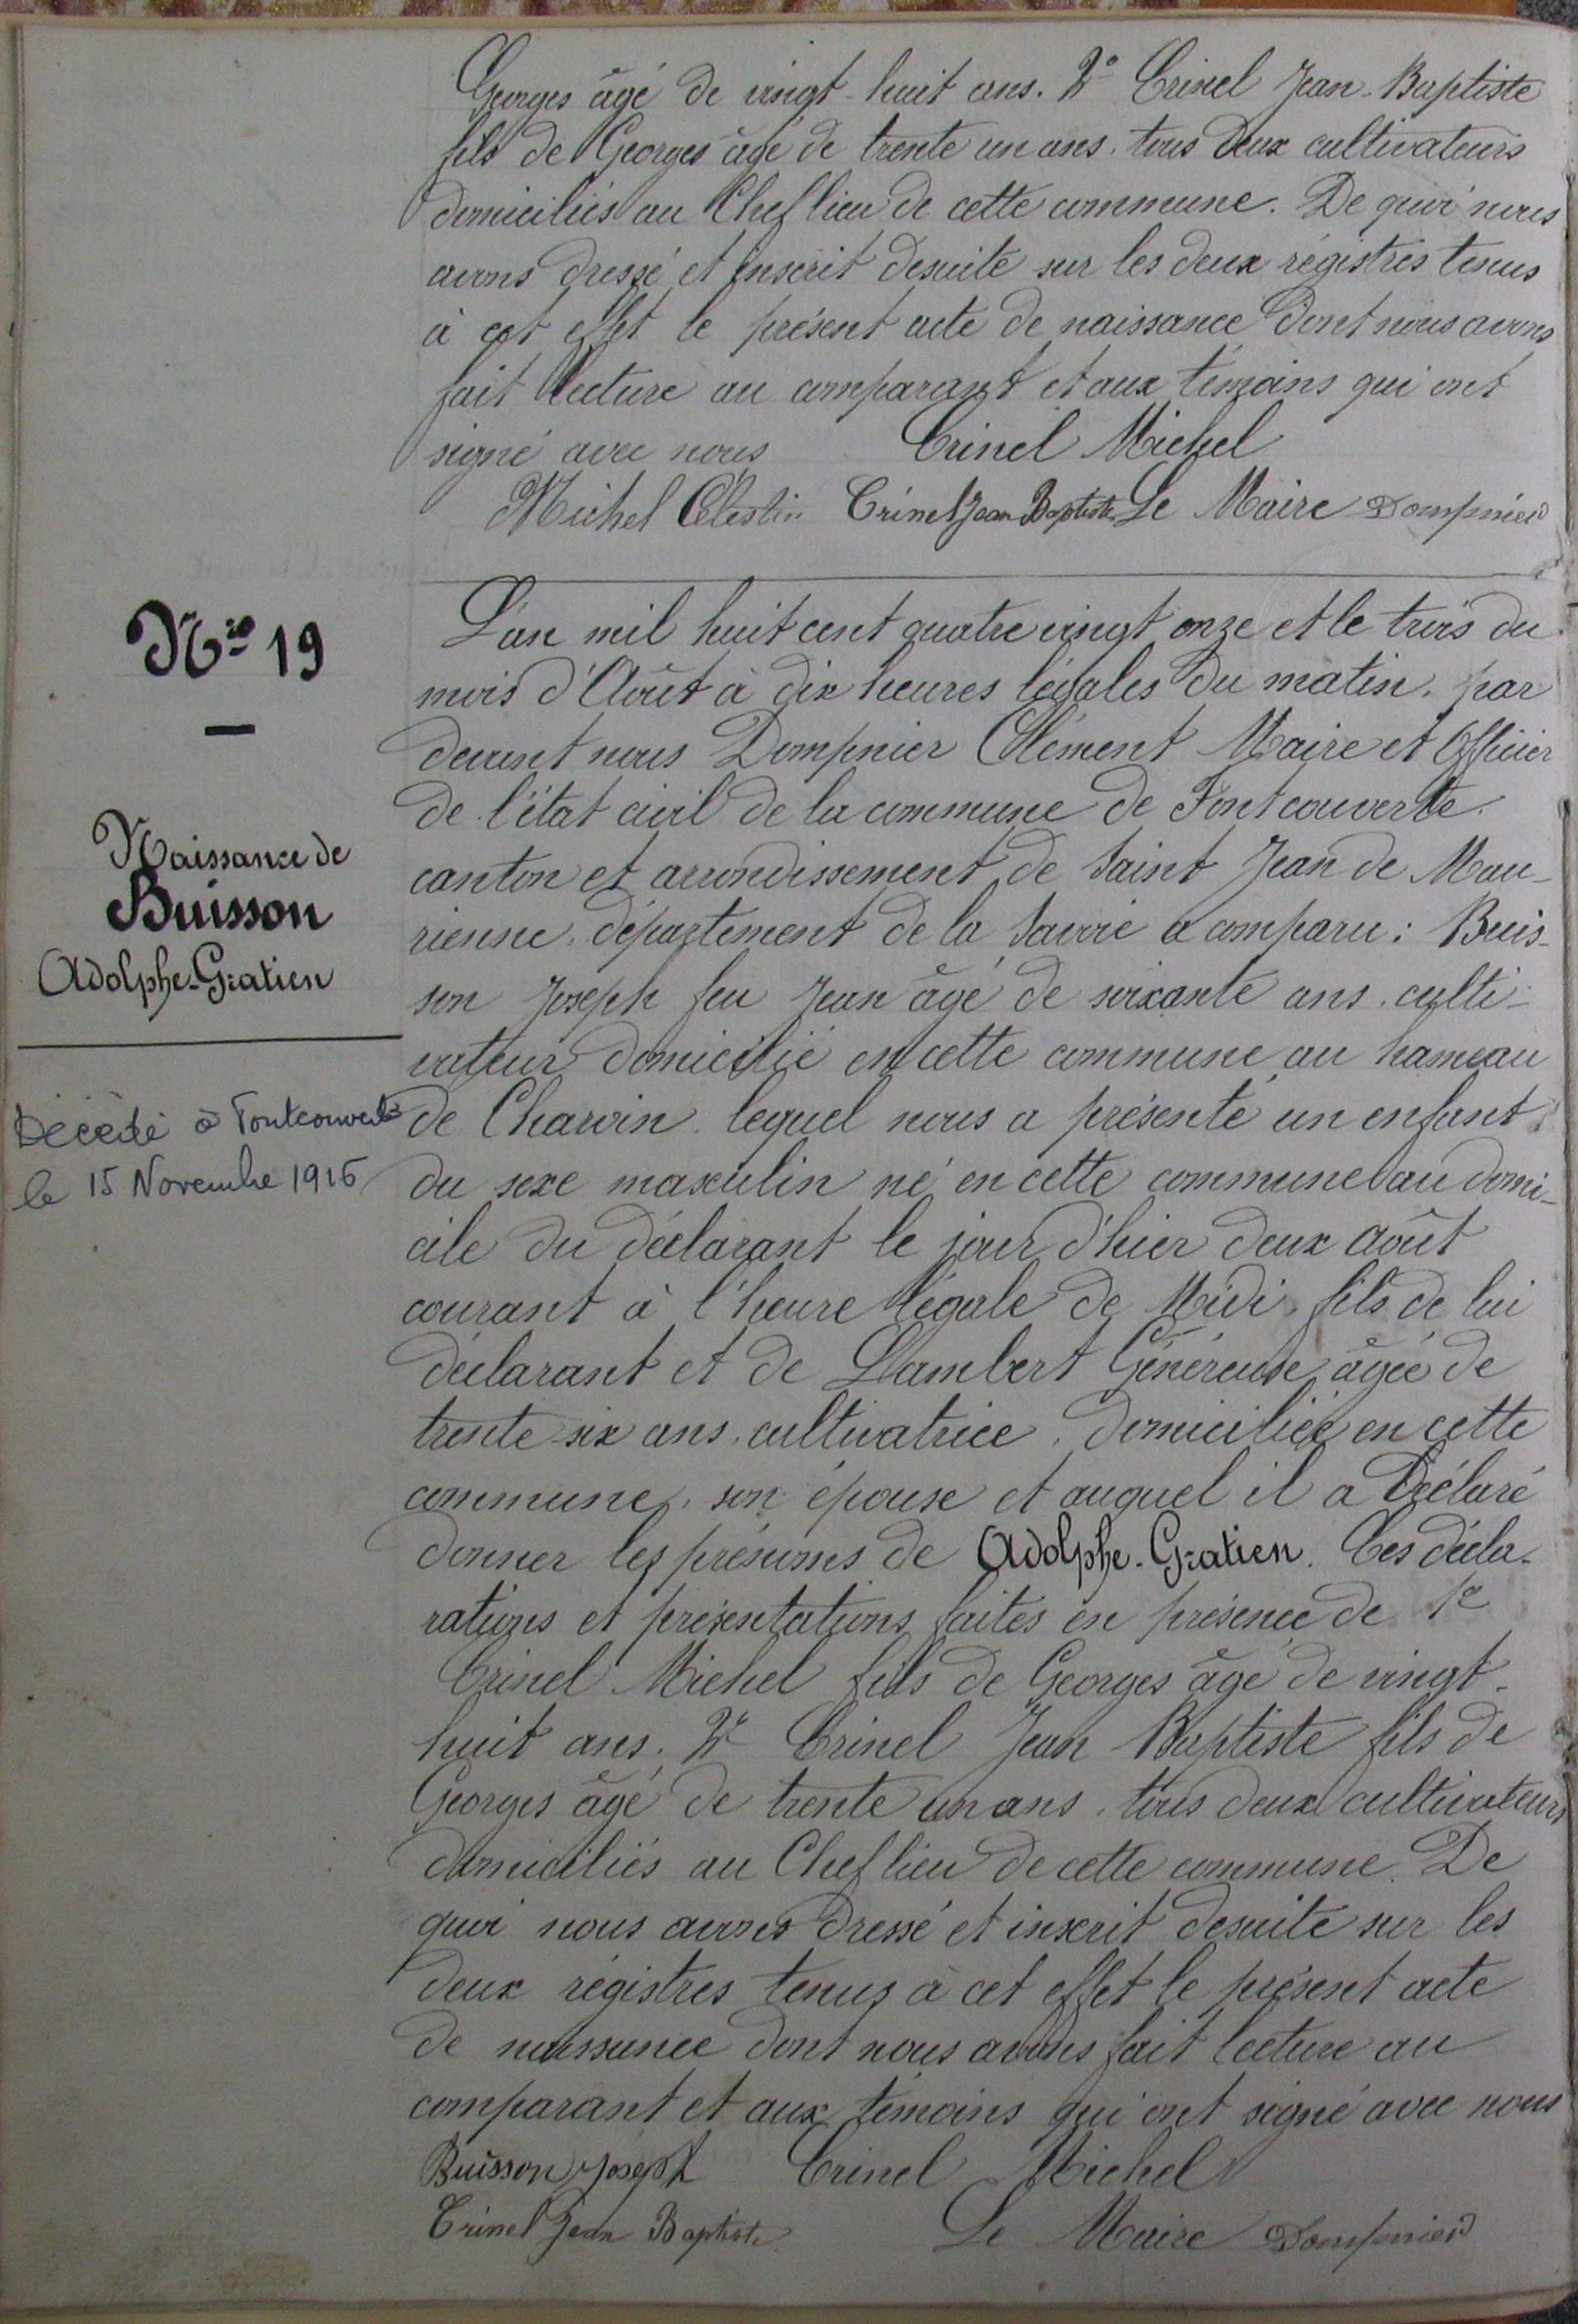 Georges âgé de vingt-huit ans. 2° Crinel Jean-Baptiste
fils de Georges âgé de trente un ans. tous deux cultivateurs
domiciliés au Chef lieu de cette commune. De quoi nous
avons dressé et inscrit desuite sur les deux régistres tenus
à cet effet le présent acte de naissance dont nous avons
fait lecture au comparant et aux témoins qui ont
signé avec nous Crinel Michel
Michel Célestin Crinel Jean Baptiste Le Maire Dompnier
N° 19
Naissance de
Buisson
Adolphe-Gratien
Décédé à Fontcouverte
le 15 Novembre 1916
L'an mil huit cent quatre vingt onze et le trois du
mois d'Août à dix heures légales du matin. par
devant nous Dompnier Clément Maire et Officier
de l'état civil de la commune de Fontcouverte.
canton et arrondissement de Saint Jean de Mau-
rienne. département de la Savoie a comparu : Buis-
son Joseph feu Jean âgé de soixante ans. culti-
vateur domicilié en cette commune au hameau
de Charvin. lequel nous a présenté un enfant
du sexe masculin né en cette commune au domi-
cile du déclarant le jour d'hier deux août
courant à l'heure légale de Midi. fils de lui
déclarant et de Lambert Généreuse âgée de
trente-six ans. cultivatrice. domiciliée en cette
commune. son épouse et auquel il a Déclaré
donner les prénoms de Adolphe-Gratien. Ces décla-
rations et présentations faites en présence de 1°
Crinel Michel fils de Georges âgé de vingt-
huit ans. 2° Crinel Jean Baptiste fils de
Georges âgé de trente un ans. tous deux cultivateurs
domiciliés au Chef lieu de cette commune. De
quoi nous avons dressé et inscrit desuite sur les
deux régistres tenus à cet effet le présent acte
de naissance dont nous avons fait lecture au
comparant et aux témoins qui ont signé avec nous
Buisson Joseph Crinel Michel
Crinel Jean Baptiste Le Maire Dompnier